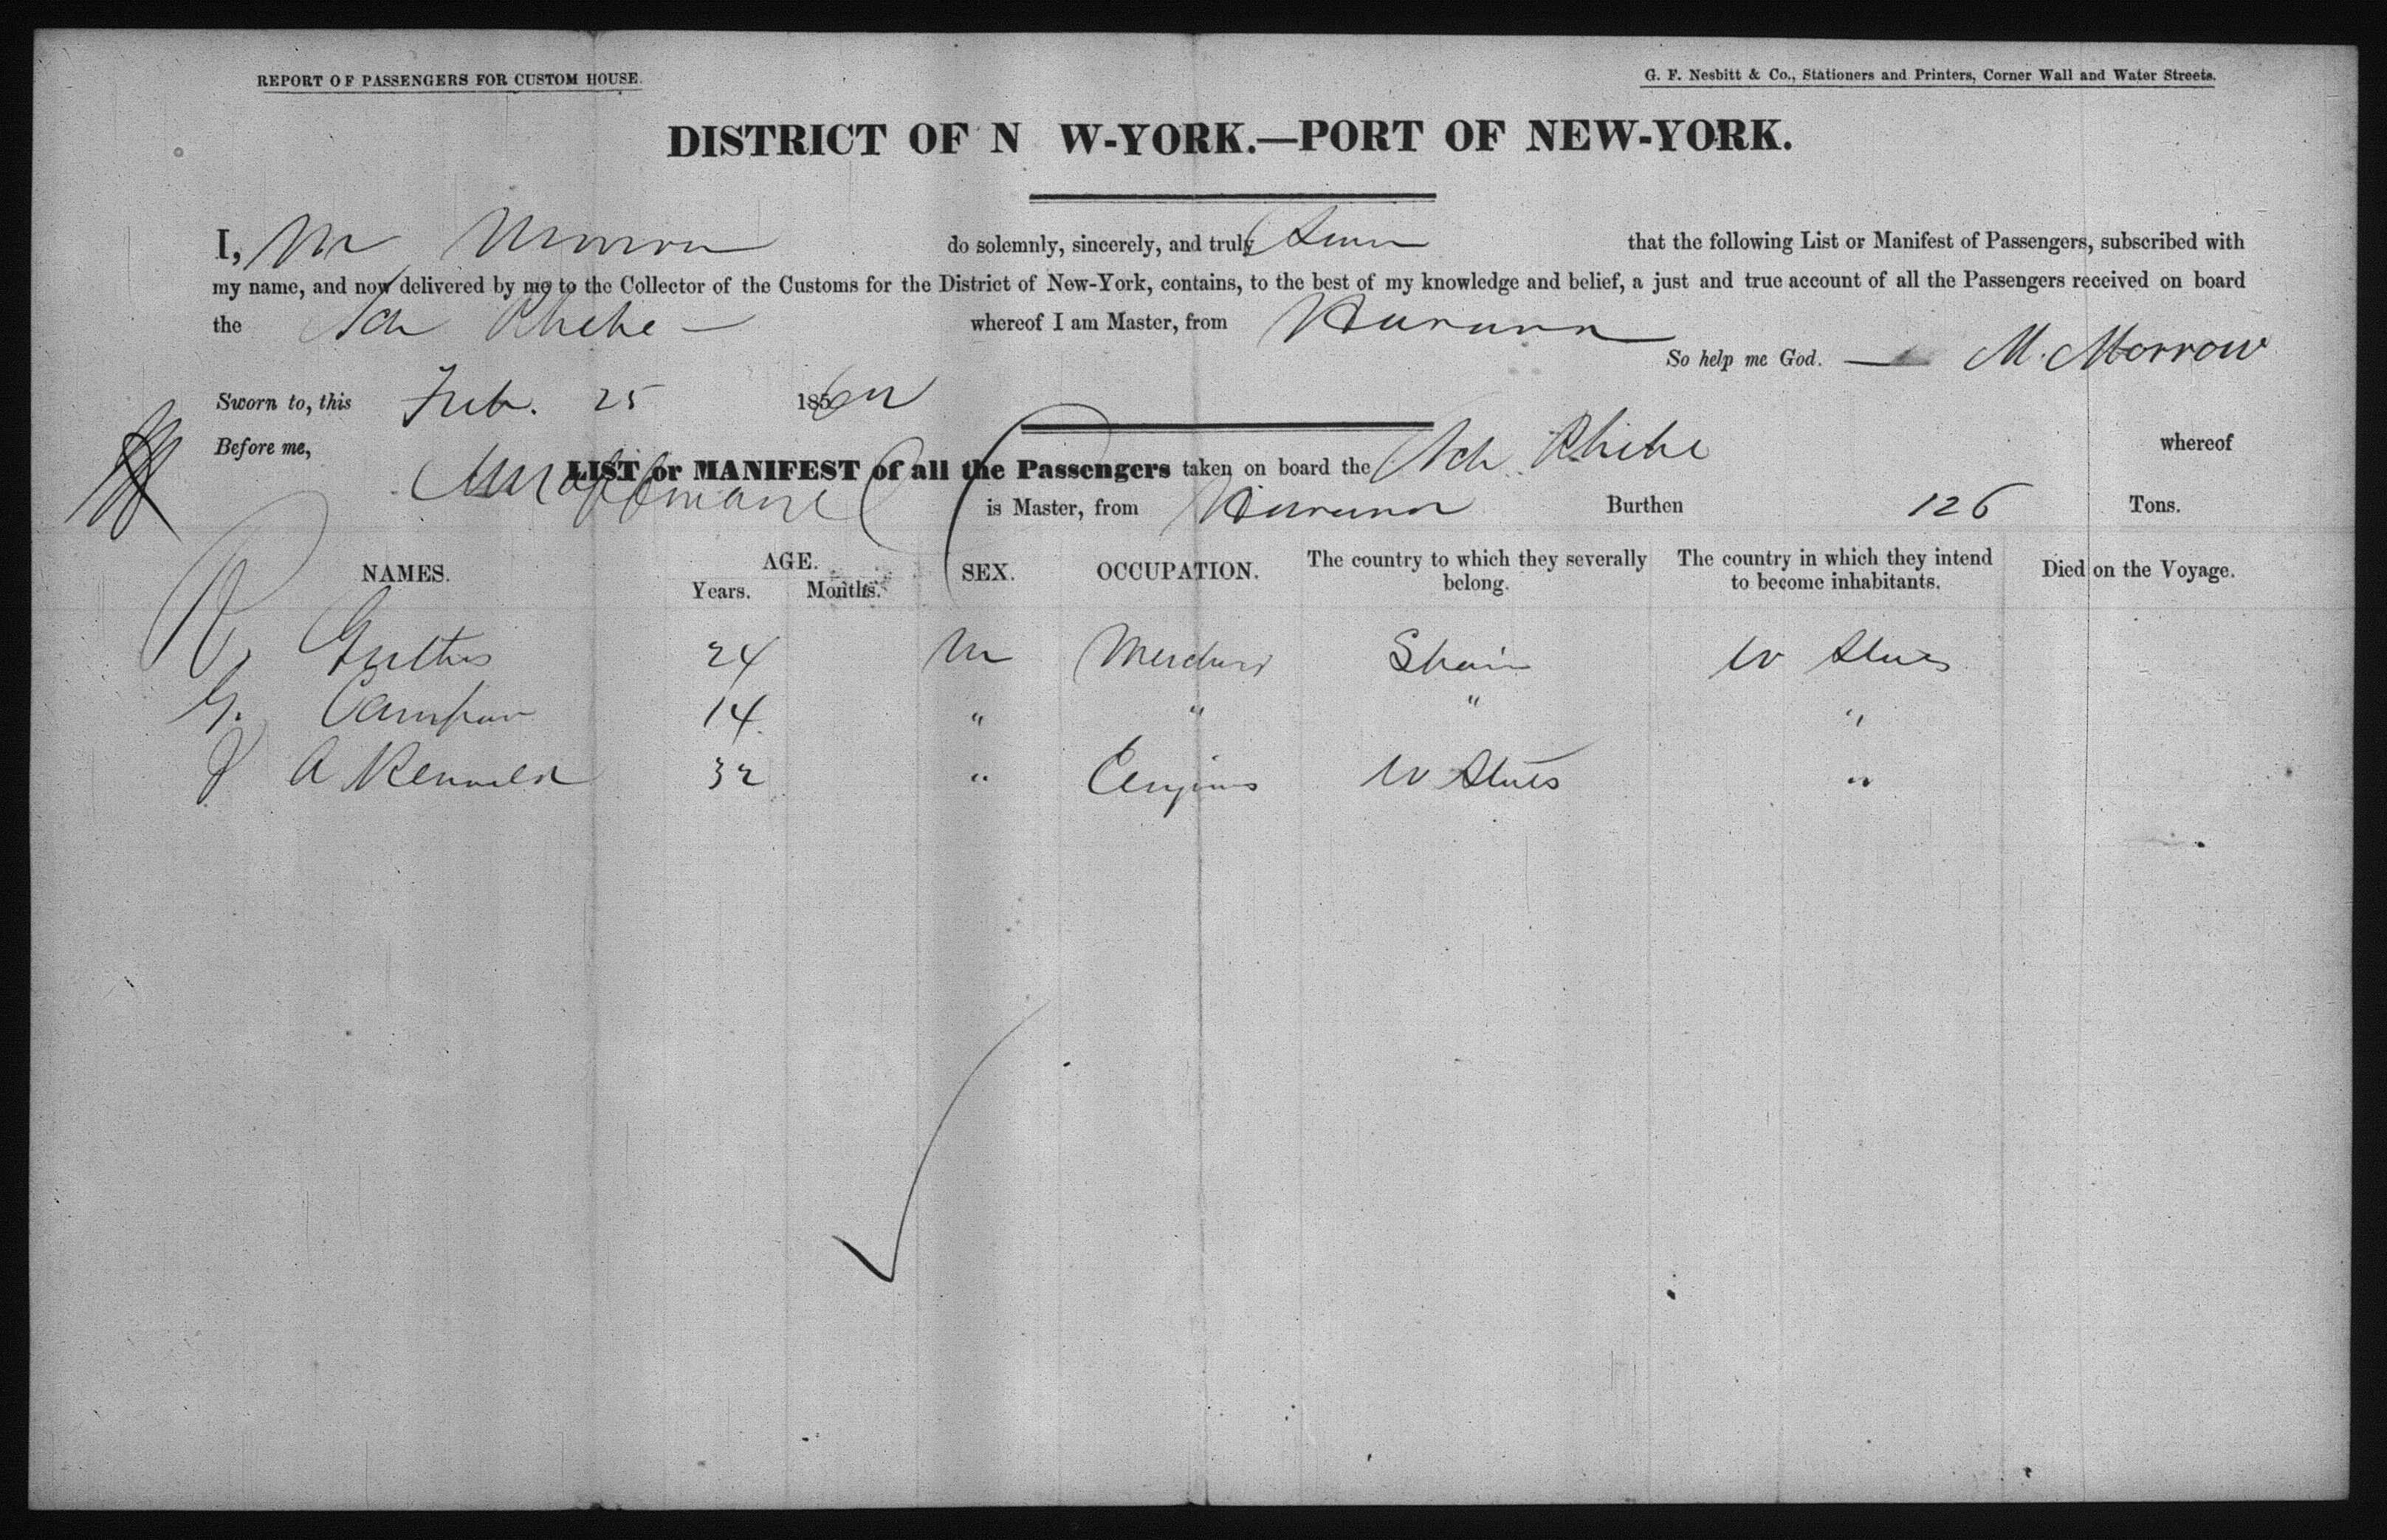 REPORT OF PASSENGERS FOR CUSTOM HOUSE.
G. F. Nesbitt & Co., Stationers and Printers, Corner Wall and Water Streets.
DISTRICT OF N W-YORK.—PORT OF NEW-YORK.
I, M Morrow do solemnly, sincerely, and truly Swear that the following List or Manifest of Passengers, subscribed with
my name, and now delivered by me to the Collector of the Customs for the District of New-York, contains, to the best of my knowledge and belief, a just and true account of all the Passengers received on board
the Sch Phebe whereof I am Master, from Havana
So help me God. — M. Morrow
Sworn to, this Feb. 25 1860
Before me,
LIST or MANIFEST of all the Passengers taken on board the Sch Phebe whereof
is Master, from Havana Burthen 126 Tons.
NAMES. AGE. Years. Months. SEX. OCCUPATION. The country to which they severally belong. The country in which they intend to become inhabitants. Died on the Voyage.
R. 24 M Merchant Spain U States
G. 14 " " " "
J A 32 " U States "